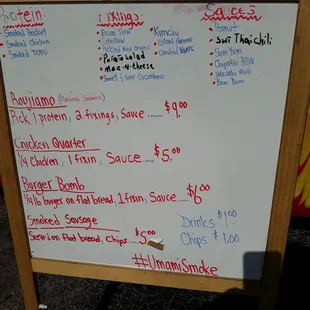 Protein Fixings Sauces
Smoked Brisket
Smoked Chicken
Smoked TOFU
Asian Slaw
Coleslaw
Pickled Red onions
Potato salad
Mac-n-Cheese
Sweet & Sour Cucumbers
Kimchi
Collard Greens
Candied Yams
Peanut
Swt Thai chili
Yum Yum
Chipotle BBQ
Wasabi Aioli
Bam Bam
Roujiamo
Pick 1 protein, 2 fixings, Sauce .... $9.00
Chicken Quarter
1/4 chicken, 1 fixin, Sauce .... $5.00
Burger Bomb
1/4 lb burger on flat bread, 1 fixin, Sauce .... $6.00
Smoked Sausage
Serv on flat bread, Chips .... $5.00
Drinks $1.00
Chips $1.00
#UmamiSmoke